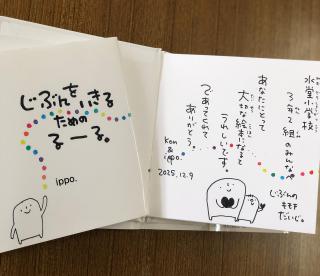 じぶんをいきる
ための
るーる。
ippo.
水堂小学校
3年2組のみんなへ
あなたにとって
大切な絵本になると
うれしいです。
であってくれて
ありがとう。
kon
&
ippo.
2025.12.9
じぶんの
キモチ
だいじ。